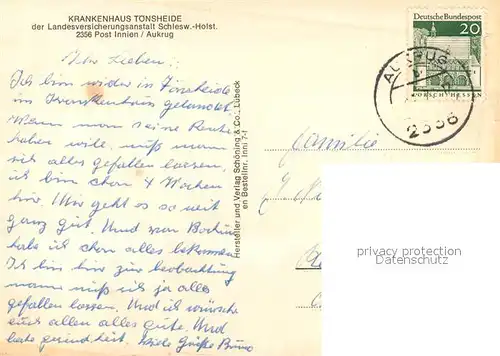 KRANKENHAUS TONSHEIDE
der Landesversicherungsanstalt Schlesw.-Holst.
2356 Post Innien / Aukrug
Ihr Lieben,:
Ich bin wider in Tonsheide
im Krankenhaus gelandet.
Wenn man seine Rente
haben will, muß man
sich alles gefallen lassen,
ich bin schon 4 Wochen
hir. Mir geht es so weit
ganz gut. Und von Bochum
habe ich schon alles bekommen
Ich bin hir zur beobachtung
mann muß sich ja alles
gefallen lassen. Und ich wünsche
euch allen alles gute. Und
beste gesundheit. Viele Grüße Bruno
Hersteller und Verlag Schöning & Co., Lübeck
en Bestellnr. Inni 7-1
Deutsche Bundespost
20
LORSCH/HESSEN
AUKRUG
2356
Familie
privacy protection
Datenschutz